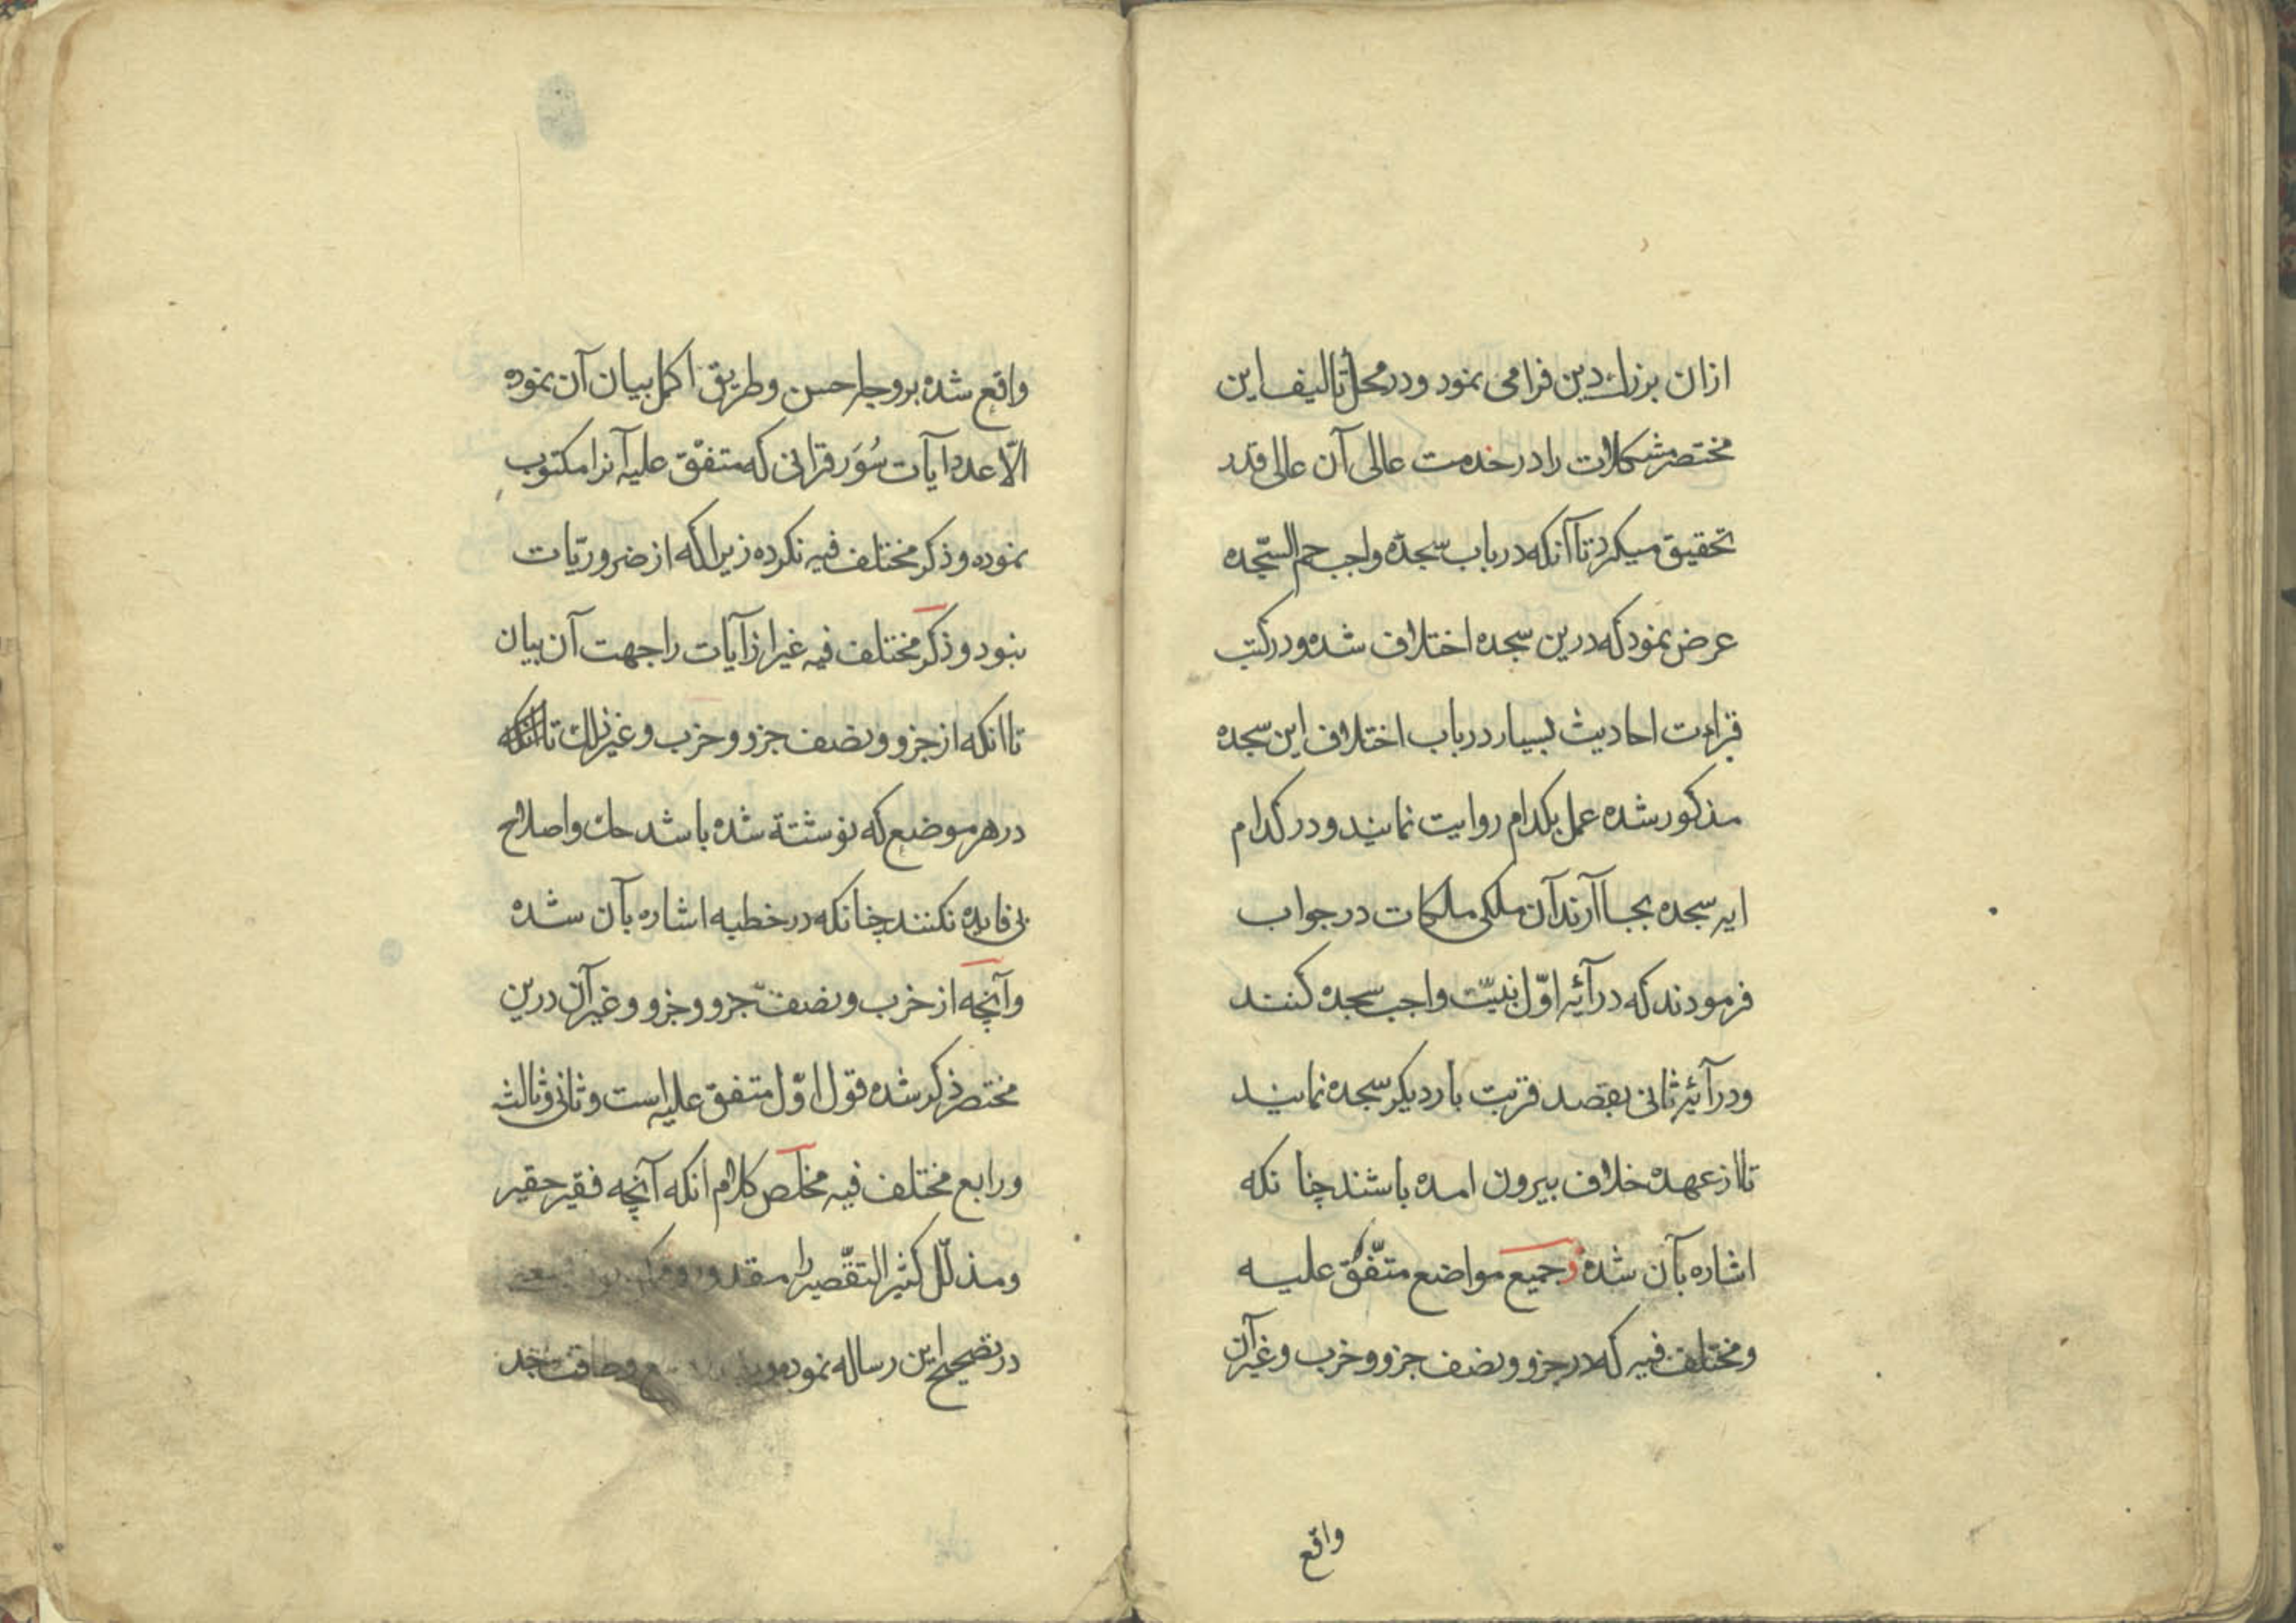 ازان بزرك دین فرا می نمود و در محل تالیف این
مختصر مشکلات را در خدمت عالی آن عالی قدر
تحقیق میکرد تا آنکه در باب سجدۀ واجب حم السّجده
عرض نمود که درین سجده اختلاف شده و در کتب
قراءت احادیث بسیار در باب اختلاف این سجده
مذکور شده عمل بکدام روایت نمایند و در کدام
ایه سجده بجا آرند آن ملکی ملکات در جواب
فرمودند که در آیۀ اوّل بنیّت واجب سجده کنند
و در آیۀ ثانی بقصد قربت بار دیکر سجده نمایند
تا از عهده خلاف بیرون امده باشند چنا نکه
اشاره بآن شده در جمیع مواضع متّفق علیه
و مختلف فیه که در جزو و نصف جزو و حزب و غیر آن
واقع
واقع شده بر وجه احسن و طریق اکمل بیان آن نموده
الّا عدد آیات سُوَر قرانی که متفقّ علیه آنرا مکتوب
نموده و ذکر مختلف فیه نکرده زیرا که از ضروریّات
نبود و ذکر مختلف فیه غیر از آیات را جهت آن بیان
تا انکه از جزو و نصف جزو و حزب و غیر ذلك تا انکه
در هر موضع که نوشتة شده باشد حك و اصلاح
بی فایده نکنند چنانکه در خطبه اشاره بآن شده
و آنچه از حزب و نصف جزو و جزو و غیر آن درین
مختصر ذکر شده قول اوّل متفق علیه است و ثانی و ثالث
و رابع مختلف فیه مخلص کلام انکه آنچه فقیر حقیر
و مذلّل کثیر التقّصیر را مقدور و
در تصحیح این رساله نموده